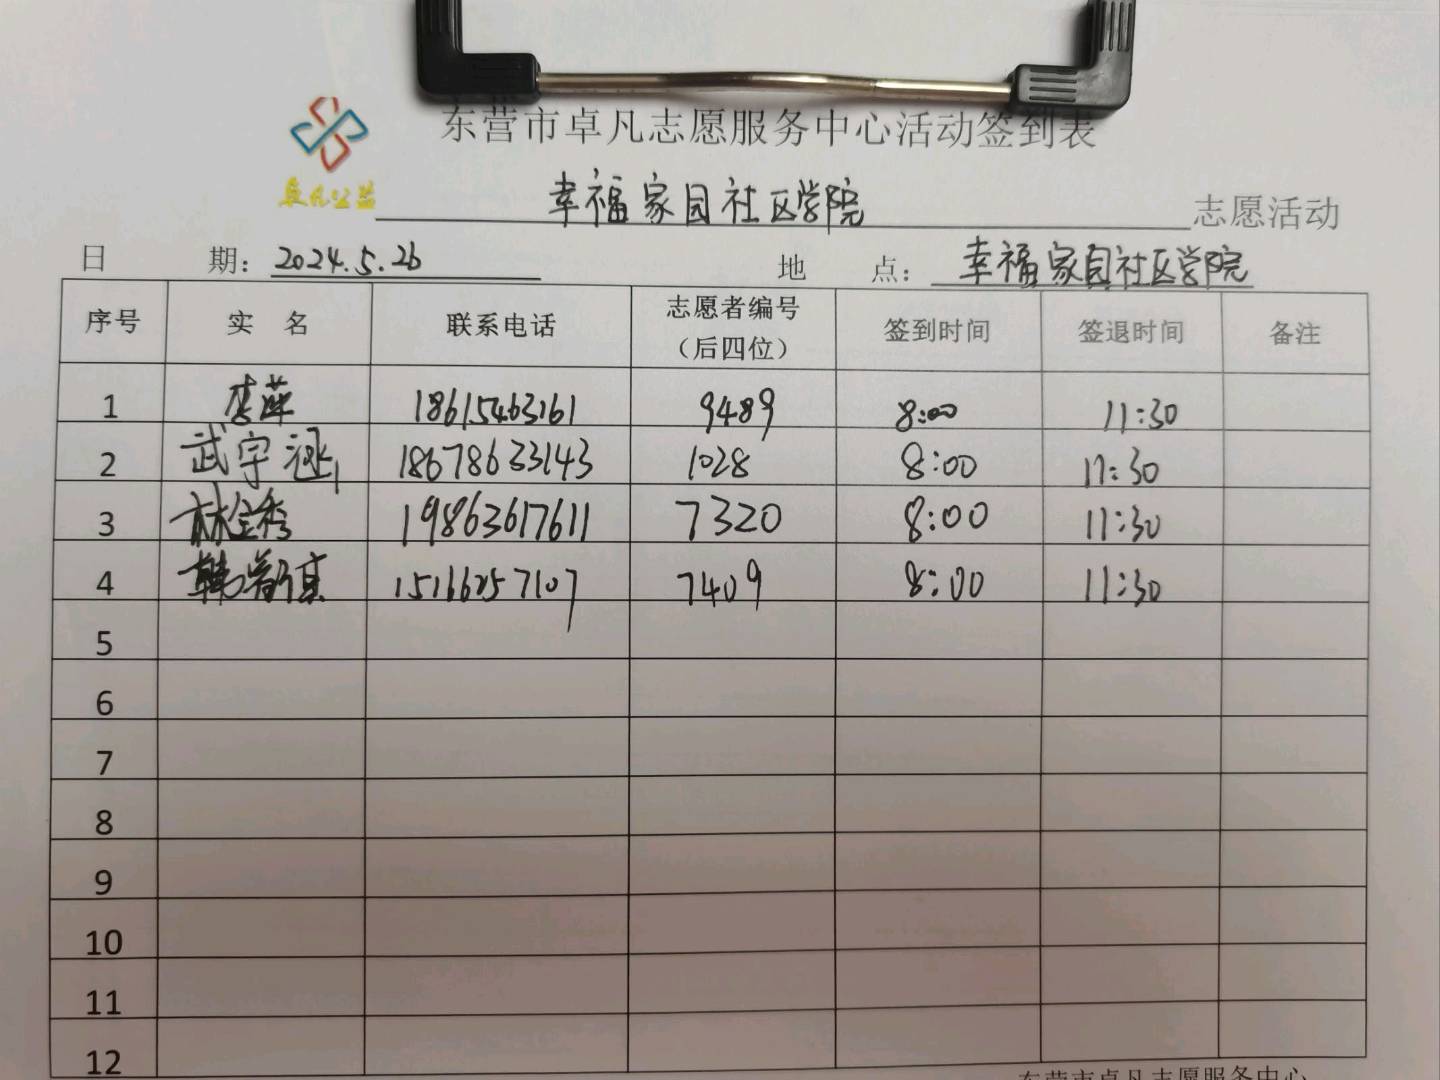 东营市卓凡志愿服务中心活动签到表
卓凡公益
幸福家园社区学院 志愿活动
日 期：2024.5.26 地 点：幸福家园社区学院
序号 实 名 联系电话 志愿者编号（后四位） 签到时间 签退时间 备注
1 李萍 18615463161 9489 8:00 11:30
2 武宇 18678633143 1028 8:00 11:30
3 林金秀 19863617611 7320 8:00 11:30
4 韩 7409 8:00 11:30
5
6
7
8
9
10
11
12
东营市卓凡志愿服务中心